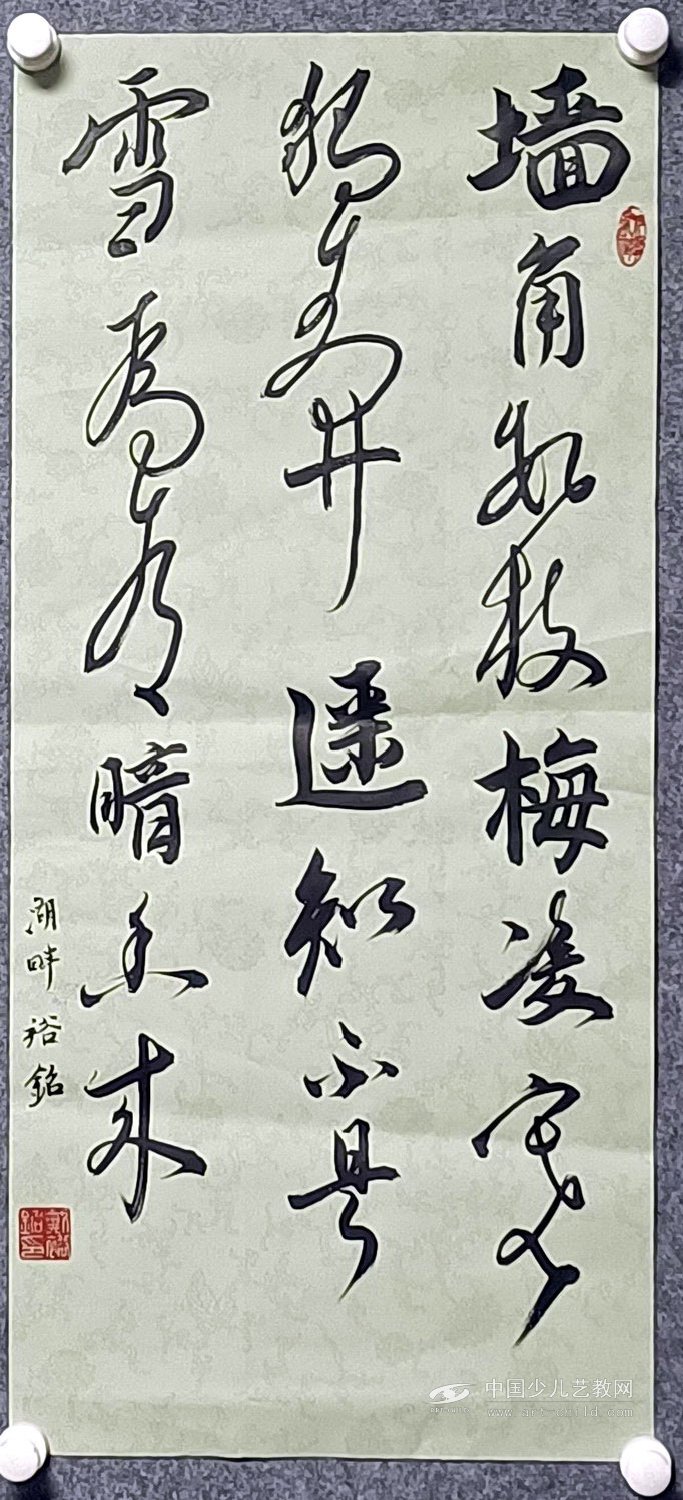 墙角数枝梅凌寒
独自开遥知不是
雪为有暗香来
湖畔裕銘
中国少儿艺教网
www.art-child.com